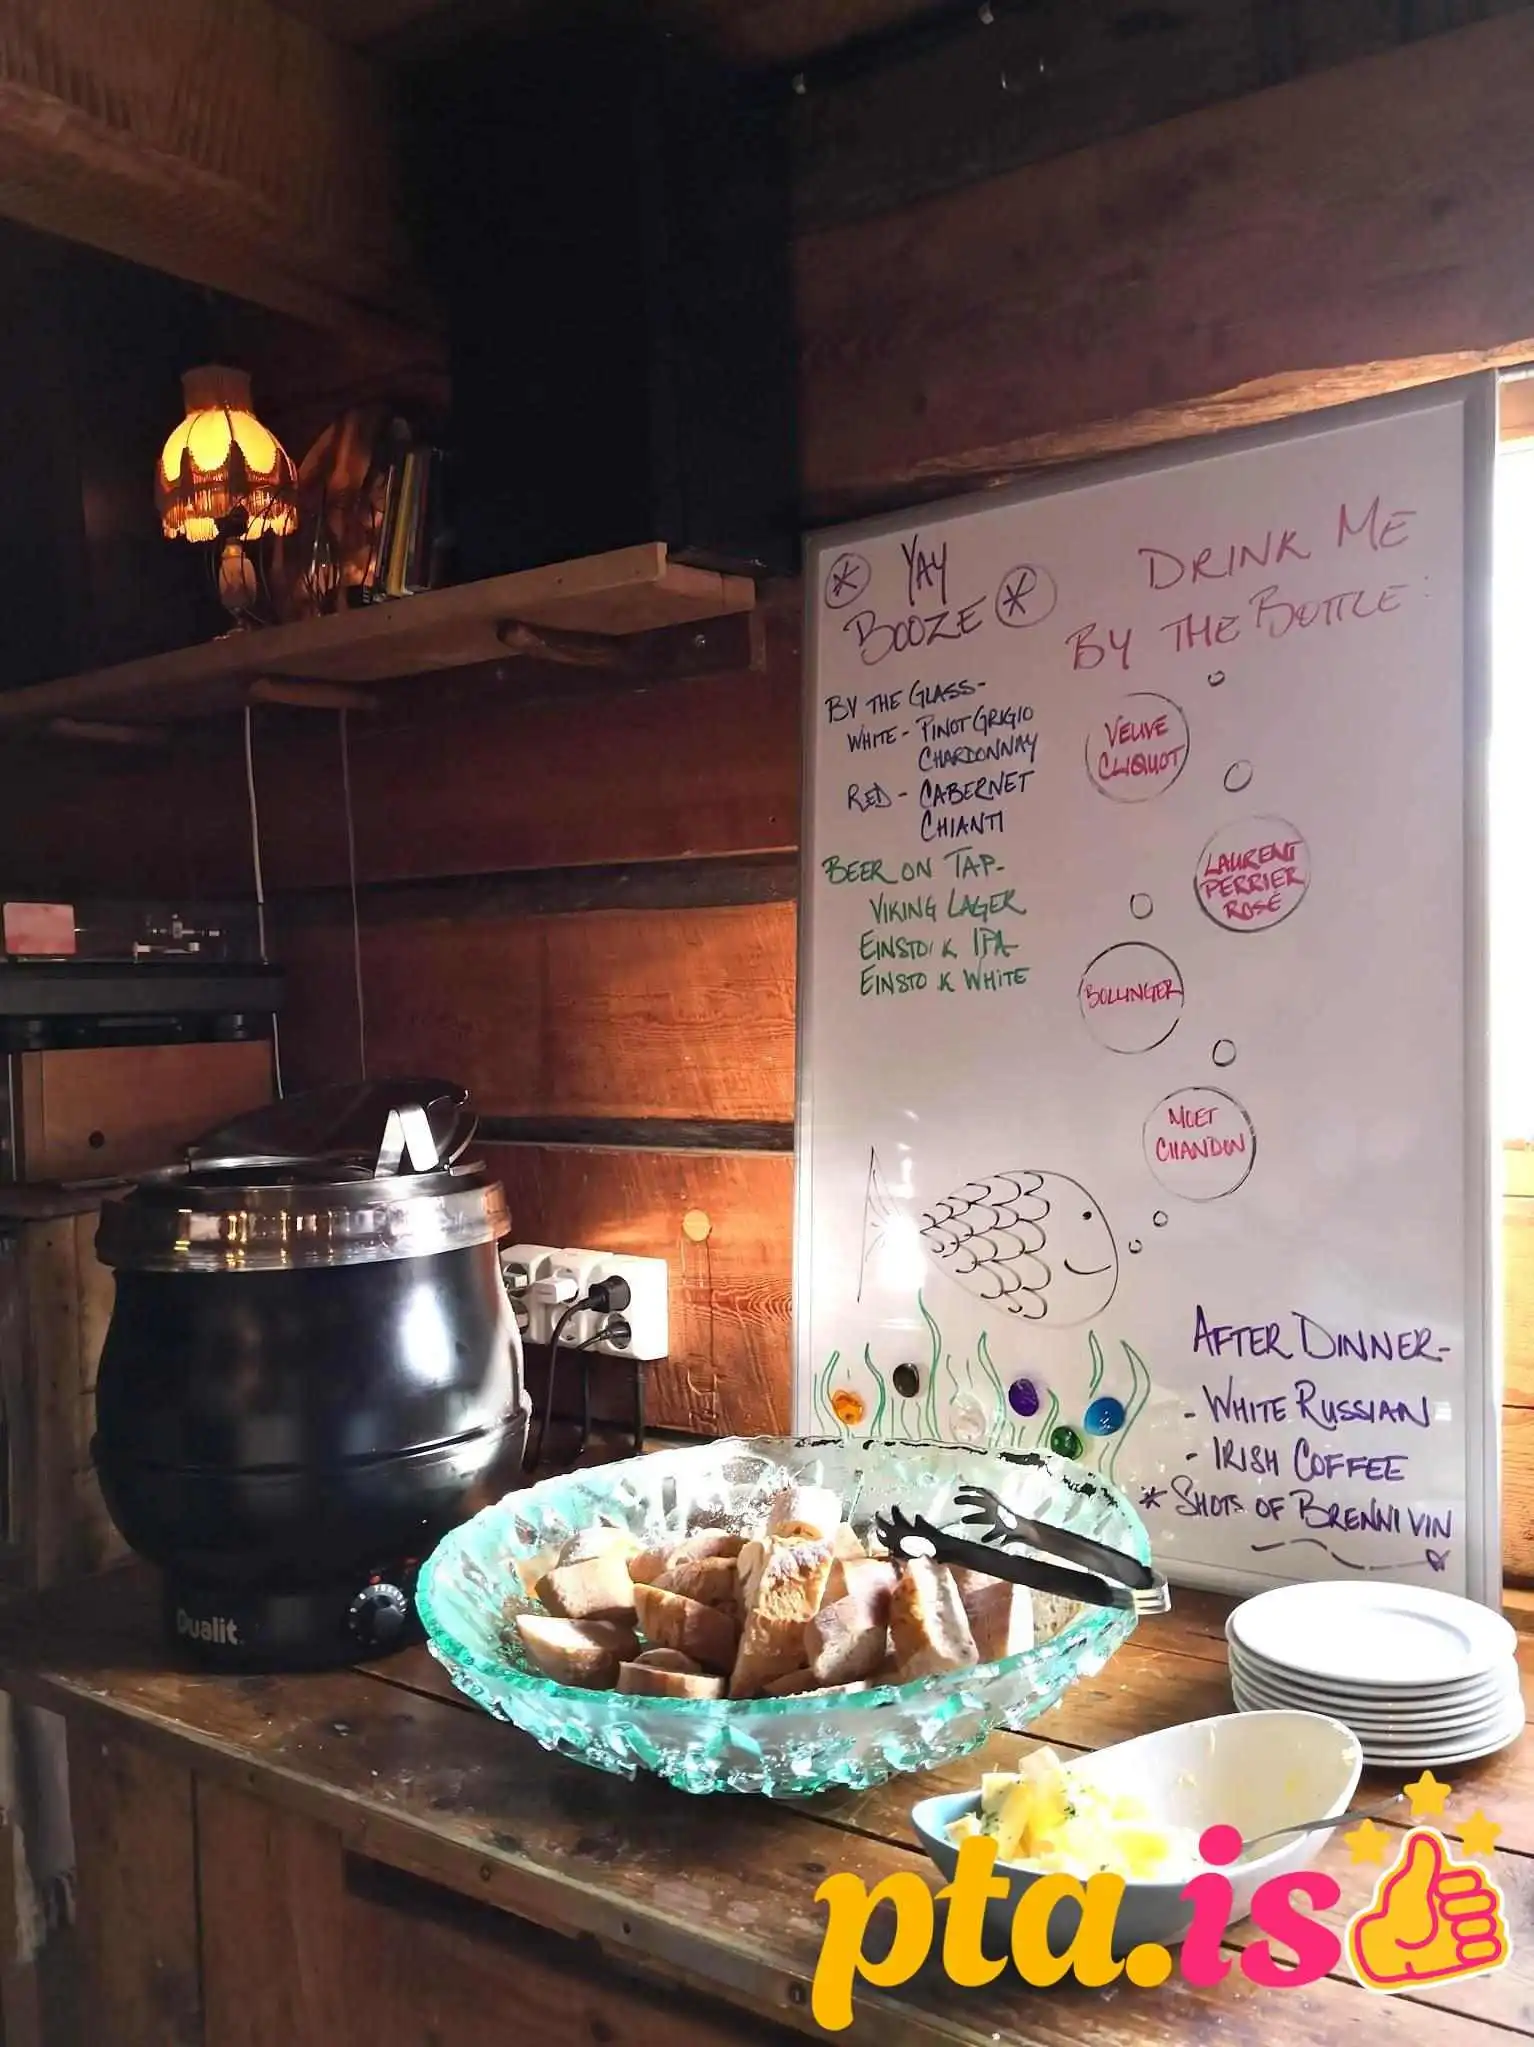 * YAY *
BOOZE
BY THE GLASS-
WHITE - PINOT GRIGIO
CHARDONNAY
RED - CABERNET
CHIANTI
BEER ON TAP-
VIKING LAGER
EINSTO K IPA
EINSTO K WHITE
DRINK ME
BY THE BOTTLE:
VEUVE
CLIQUOT
LAURENT
PERRIER
ROSÉ
BOLLINGER
MOET
CHANDON
AFTER DINNER-
- WHITE RUSSIAN
- IRISH COFFEE
* SHOTS OF BRENNIVIN
Dualit
pta.is